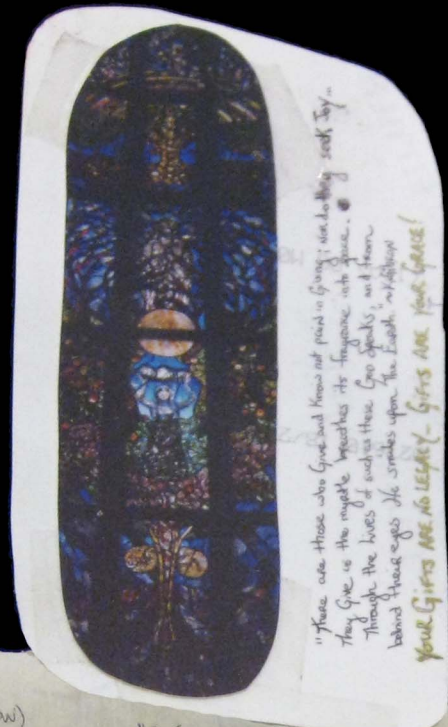 "There are those who Give and Know not pain in Giving; nor do they seek Joy...
They Give as the myrtle breathes its fragrance into space.
Through the lives of such as these God Speaks, and from
behind their eyes He smiles upon The Earth" ~ K Gibran
YOUR GIFTS ARE NO LEGACY - GIFTS ARE YOUR GRACE!